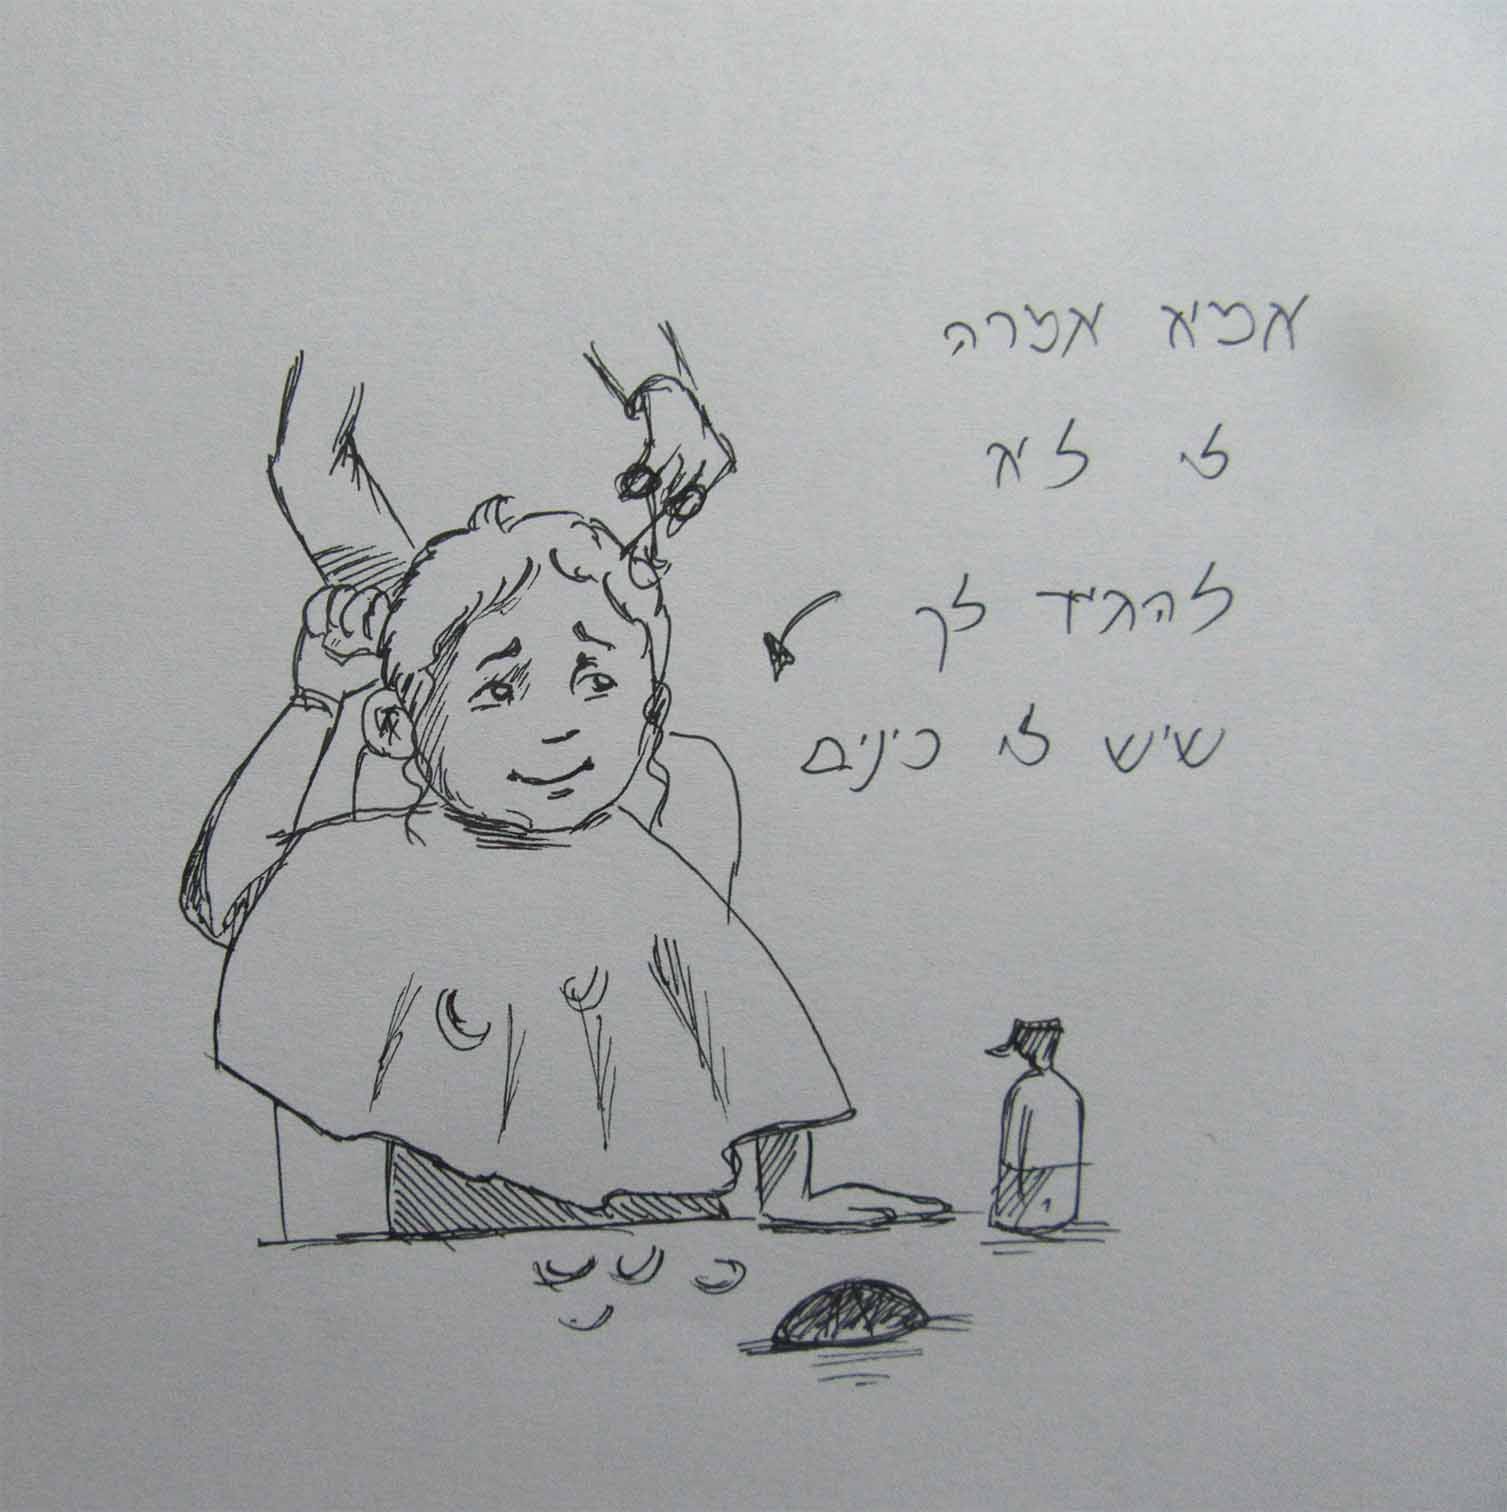 אמא אמרה
לי לא
להגיד לך
שיש לי כינים